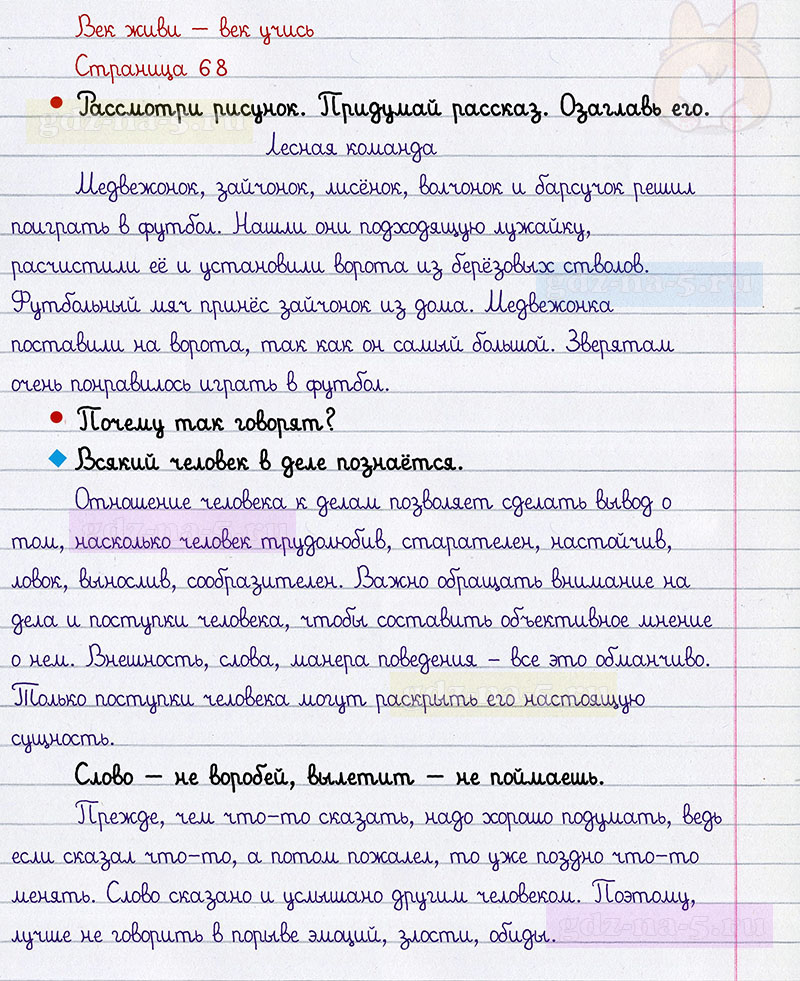 Век живи – век учись
Страница 68
• Рассмотри рисунок. Придумай рассказ. Озаглавь его.
Лесная команда
Медвежонок, зайчонок, лисёнок, волчонок и барсучок решил
поиграть в футбол. Нашли они подходящую лужайку,
расчистили её и установили ворота из берёзовых стволов.
Футбольный мяч принёс зайчонок из дома. Медвежонка
поставили на ворота, так как он самый большой. Зверятам
очень понравилось играть в футбол.
• Почему так говорят?
Всякий человек в деле познаётся.
Отношение человека к делам позволяет сделать вывод о
том, насколько человек трудолюбив, старателен, настойчив,
ловок, вынослив, сообразителен. Важно обращать внимание на
дела и поступки человека, чтобы составить объективное мнение
о нем. Внешность, слова, манера поведения – все это обманчиво.
Только поступки человека могут раскрыть его настоящую
сущность.
Слово – не воробей, вылетит – не поймаешь.
Прежде, чем что-то сказать, надо хорошо подумать, ведь
если сказал что-то, а потом пожалел, то уже поздно что-то
менять. Слово сказано и услышано другим человеком. Поэтому,
лучше не говорить в порыве эмоций, злости, обиды.
gdz-na-5.ru
gdz-na-5.ru
gdz-na-5.ru
gdz-na-5.ru
gdz-na-5.ru